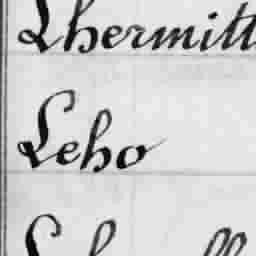 Lhermitt
Leho